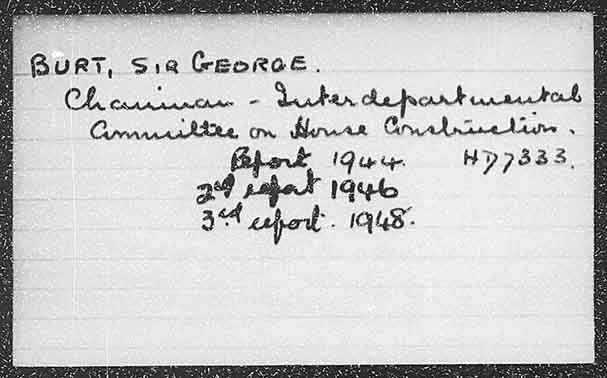 BURT, SIR GEORGE.
Chairman - Interdepartmental
Committee on House Construction.
Report 1944. HD7333.
2nd report 1946
3rd report. 1948.